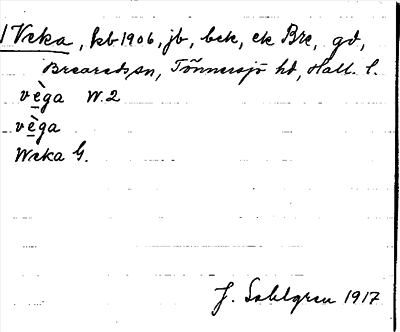 1 Veka, kb 1906, jb, bek, ek Bre, gd,
Breareds sn, Tönnersjö hd, Hall. l.
vè̱ga W. 2
vè̱ga
Weka G.
J. Sahlgren 1917